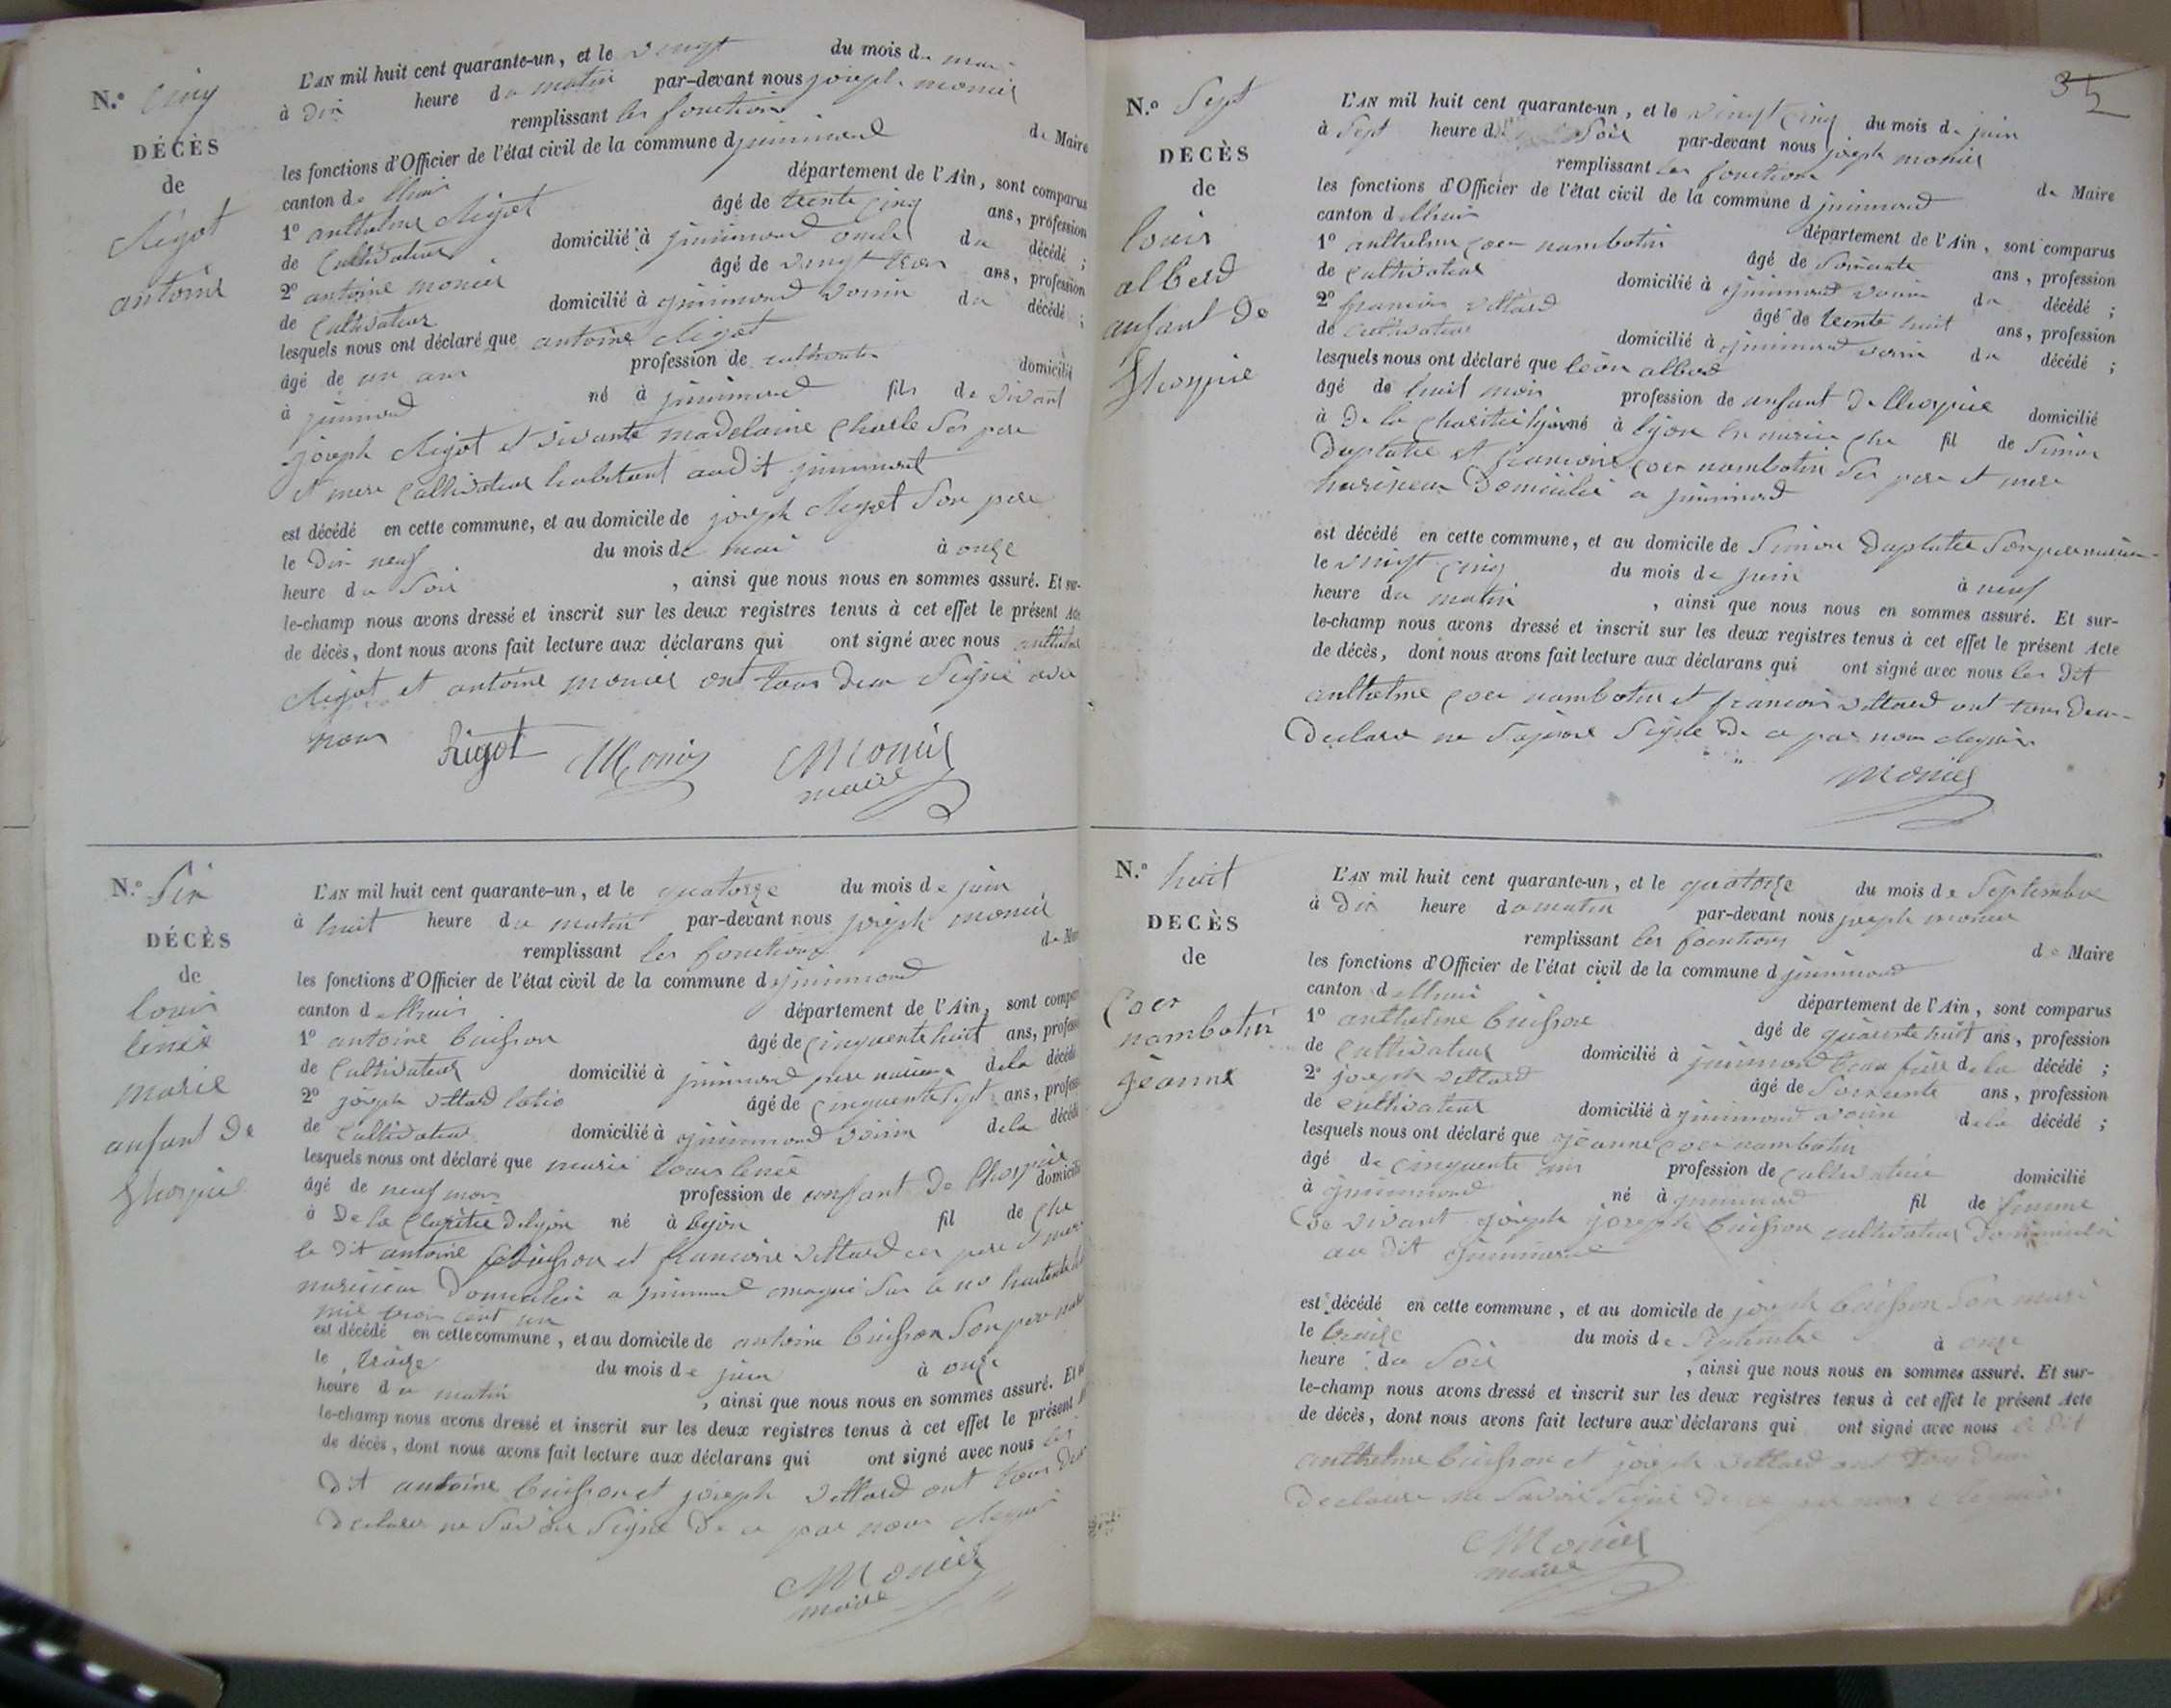 N.° Cinq
DÉCÈS
de
Rigot
antoine
L'AN mil huit cent quarante-un, et le vingt du mois de mai
à dix heure du matin par-devant nous joseph monier
remplissant les fonctions de Maire
les fonctions d'Officier de l'état civil de la commune d jujurieux
canton de lhuis département de l'Ain, sont comparus
1° anthelme Rigot âgé de trente cinq ans, profession
de Cultivateur domicilié à oncle du décédé ;
2° antoine monier âgé de vingt trois ans, profession
de Cultivateur domicilié à voisin du décédé ;
lesquels nous ont déclaré que antoine Rigot
âgé de un ans profession de cultivateur domicilié
à né à fils de vivant
joseph Rigot et vivante madelaine Charle Ses pere
et mere Cultivateur habitant audit
est décédé en cette commune, et au domicile de joseph Rigot Son pere
le Dix neuf du mois de mai à onze
heure du Soir , ainsi que nous nous en sommes assuré. Et sur-
le-champ nous avons dressé et inscrit sur les deux registres tenus à cet effet le présent Acte
de décès, dont nous avons fait lecture aux déclarans qui ont signé avec nous anthelme
Rigot et antoine monier ont tous deux Signé avec
nous
Rigot Monier Monier
maire
N.° Six
DÉCÈS
de
louis
marie
anfant de
lhospice
L'AN mil huit cent quarante-un, et le quatorze du mois de juin
à huit heure du matin par-devant nous joseph monier
remplissant les fonctions de Maire
les fonctions d'Officier de l'état civil de la commune d
canton d lhuis département de l'Ain, sont comparus
1° antoine buisson âgé de Cinquente huit ans, profession
de Cultivateur domicilié à pere de la décédé
2° joseph vettard âgé de Cinquente Sept ans, profession
de Cultivateur domicilié à voisin de la décédé
lesquels nous ont déclaré que marie louis
âgé de neuf mois profession de anfant de lhospice domicilié
à De la Charitée de lyon né à lyon fil de Che
le dit antoine buisson et francoise vettard ces pere et mere
nuricieur Domicilié a Sur le no
mil trois cent un
est décédé en cette commune, et au domicile de antoine buisson Son pere
le treize du mois de juin à onze
heure du matin , ainsi que nous nous en sommes assuré. Et
le-champ nous avons dressé et inscrit sur les deux registres tenus à cet effet le présent
de décès, dont nous avons fait lecture aux déclarans qui ont signé avec nous les
dit antoine buisson et joseph vettard ont tous deux
declaré ne Savoir Signé de ce par nous Requis
Monier
maire
35
N.° Sept
DECÈS
de
louis
alberd
anfant de
lhospice
L'AN mil huit cent quarante-un, et le vingt Cinq du mois de juin
à Sept heure du Soir par-devant nous joseph monier
remplissant les fonctions de Maire
les fonctions d'Officier de l'état civil de la commune d
canton d lhuis département de l'Ain, sont comparus
1° anthelme Coer nambotin âgé de Soixante ans, profession
de Cultivateur domicilié à voisin du décédé ;
2° francois vettard âgé de trente huit ans, profession
de Cultivateur domicilié à voisin du décédé ;
lesquels nous ont déclaré que
âgé de huit mois profession de anfant de lhospice domicilié
à De la Charitée né à lyon fil de Simon
et francoise Coer nambotin Ses pere et mere
Domicilié a
est décédé en cette commune, et au domicile de Simon
le vingt Cinq du mois de juin à neuf
heure du matin , ainsi que nous nous en sommes assuré. Et sur-
le-champ nous avons dressé et inscrit sur les deux registres tenus à cet effet le présent Acte
de décès, dont nous avons fait lecture aux déclarans qui ont signé avec nous les dit
anthelme Coer nambotin et francois vettard ont tous deux
Declaré ne Signé de ce par nous Requis
Monier
N.° huit
DECÈS
de
Coer
nambotin
jeanne
L'AN mil huit cent quarante-un, et le quatorze du mois de Septembre
à Dix heure du matin par-devant nous joseph monier
remplissant les fonctions de Maire
les fonctions d'Officier de l'état civil de la commune d
canton d lhuis département de l'Ain, sont comparus
1° anthelme buisson âgé de quarente huit ans, profession
de Cultivateur domicilié à beau frere de la décédé ;
2° joseph vettard âgé de Soixante ans, profession
de Cultivateur domicilié à voisin de la décédé ;
lesquels nous ont déclaré que jeanne Coer nambotin
âgé de Cinquente ans profession de Cultivatrice domicilié
à né à fil de femme
de vivant joseph joseph buisson cultivateur Domicilié
au dit
est décédé en cette commune, et au domicile de joseph buisson Son mari
le treize du mois de Septembre à onze
heure du Soir , ainsi que nous nous en sommes assuré. Et sur-
le-champ nous avons dressé et inscrit sur les deux registres tenus à cet effet le présent Acte
de décès, dont nous avons fait lecture aux déclarans qui ont signé avec nous le dit
anthelme buisson et joseph vettard ont tous deux
declaré ne Savoir Signé de ce par nous
Monier
maire